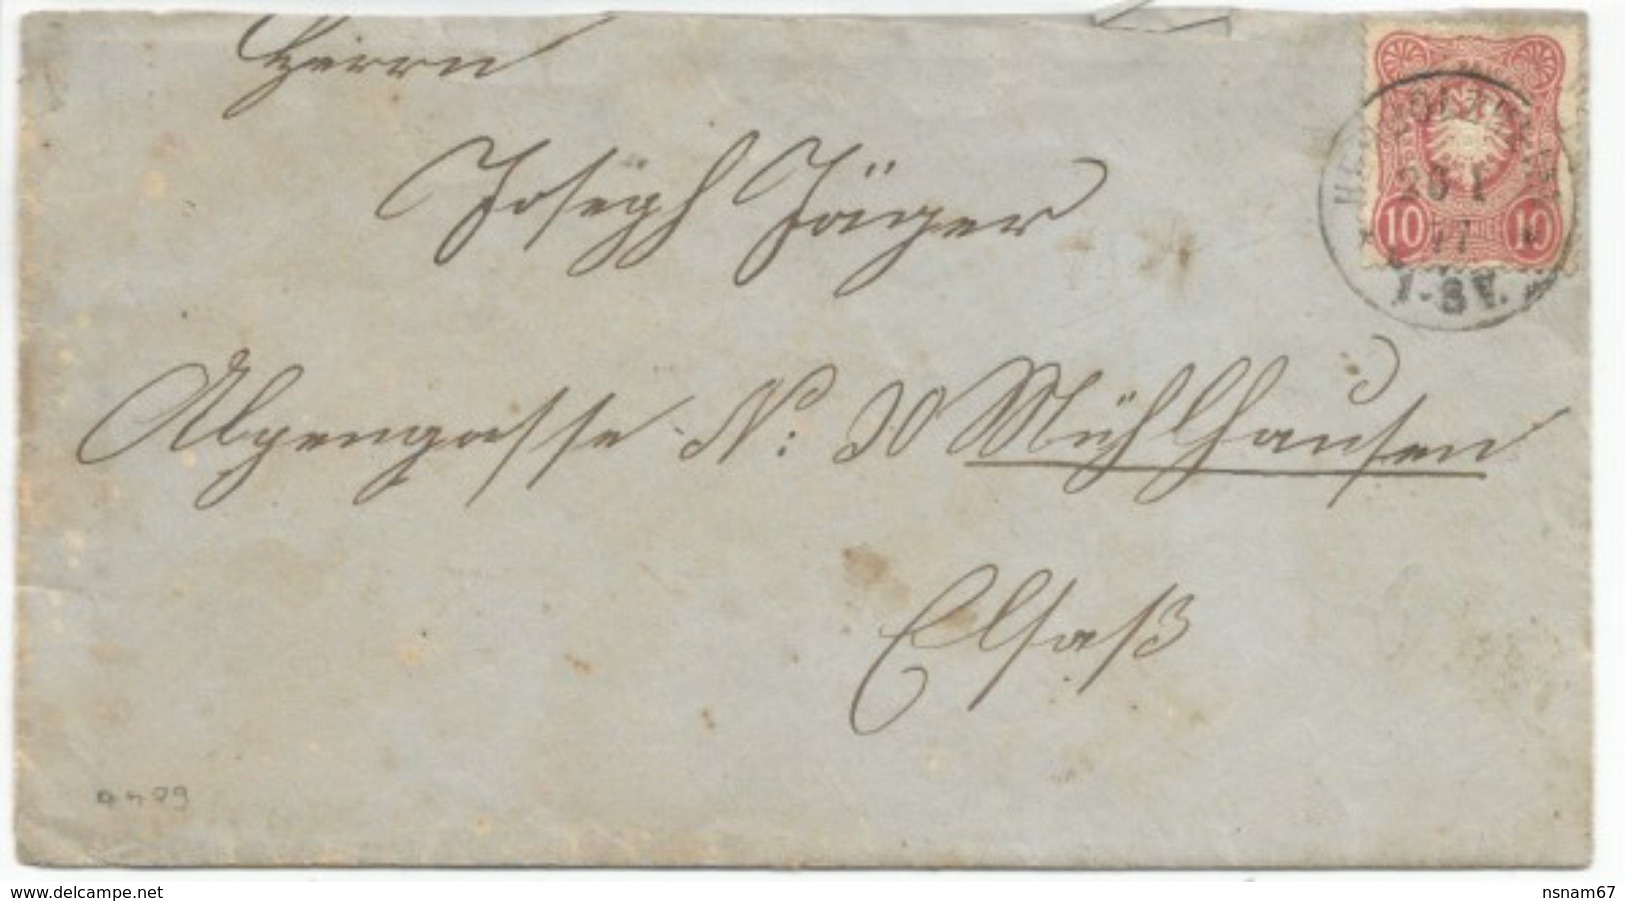 Herrn
Joseph Jäger
Alpengasse N: 30 Mühlhausen
Elsaß
10 10
26 1
77
1-8V.
www.delcampe.net
nsnam67